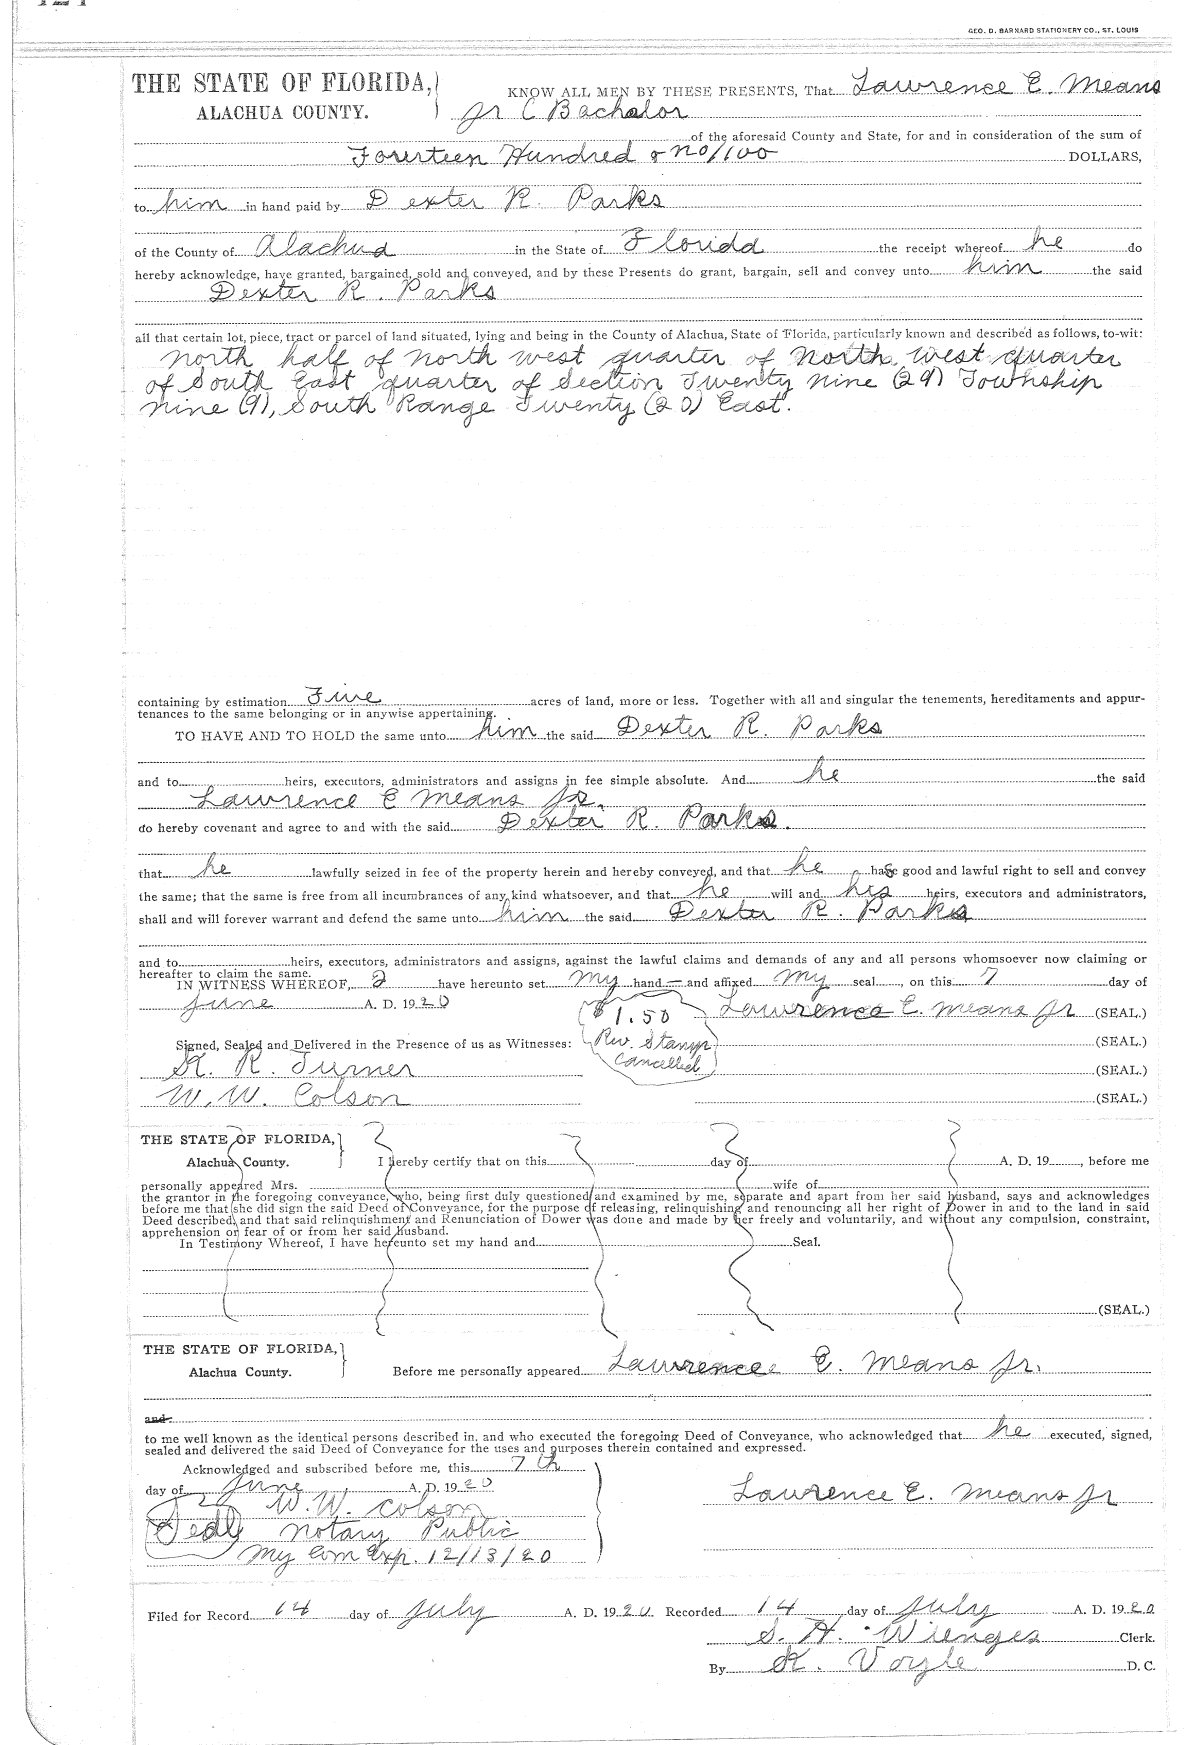 GEO. D. BARNARD STATIONERY CO., ST. LOUIS
THE STATE OF FLORIDA,
ALACHUA COUNTY.
KNOW ALL MEN BY THESE PRESENTS, That Lawrence E. Means
Jr ( Bachelor
of the aforesaid County and State, for and in consideration of the sum of
Fourteen Hundred & no/100 DOLLARS,
to him in hand paid by Dexter R. Parks
of the County of Alachua in the State of Florida the receipt whereof he do
hereby acknowledge, have granted, bargained, sold and conveyed, and by these Presents do grant, bargain, sell and convey unto him the said
Dexter R. Parks
all that certain lot, piece, tract or parcel of land situated, lying and being in the County of Alachua, State of Florida, particularly known and described as follows, to-wit:
North half of North west quarter of North west quarter
of South East quarter of Section Twenty nine (29) Township
nine (9), South Range Twenty (20) East.
containing by estimation Five acres of land, more or less. Together with all and singular the tenements, hereditaments and appur-
tenances to the same belonging or in anywise appertaining.
TO HAVE AND TO HOLD the same unto him the said Dexter R. Parks
and to heirs, executors, administrators and assigns in fee simple absolute. And he the said
Lawrence E Means Jr.
do hereby covenant and agree to and with the said Dexter R. Parks.
that he lawfully seized in fee of the property herein and hereby conveyed, and that he has good and lawful right to sell and convey
the same; that the same is free from all incumbrances of any kind whatsoever, and that he will and his heirs, executors and administrators,
shall and will forever warrant and defend the same unto him the said Dexter R. Parks
and to heirs, executors, administrators and assigns, against the lawful claims and demands of any and all persons whomsoever now claiming or
hereafter to claim the same.
IN WITNESS WHEREOF, I have hereunto set my hand and affixed my seal, on this 7 day of
June A. D. 1920
Lawrence E. Means Jr (SEAL.)
$1.50
Rev. Stamp
Cancelled
Signed, Sealed and Delivered in the Presence of us as Witnesses: (SEAL.)
R. Turner (SEAL.)
W. W. Colson (SEAL.)
THE STATE OF FLORIDA,
Alachua County.
I hereby certify that on this day of A. D. 19 , before me
personally appeared Mrs. wife of
the grantor in the foregoing conveyance, who, being first duly questioned and examined by me, separate and apart from her said husband, says and acknowledges
before me that she did sign the said Deed of Conveyance, for the purpose of releasing, relinquishing and renouncing all her right of Dower in and to the land in said
Deed described, and that said relinquishment and Renunciation of Dower was done and made by her freely and voluntarily, and without any compulsion, constraint,
apprehension or fear of or from her said husband.
In Testimony Whereof, I have hereunto set my hand and Seal.
(SEAL.)
THE STATE OF FLORIDA,
Alachua County.
Before me personally appeared Lawrence E. Means Jr.
and
to me well known as the identical persons described in, and who executed the foregoing Deed of Conveyance, who acknowledged that he executed, signed,
sealed and delivered the said Deed of Conveyance for the uses and purposes therein contained and expressed.
Acknowledged and subscribed before me, this 7th
day of June A. D. 1920
Lawrence E. Means Jr
W. W. Colson
Seal Notary Public
My Com Exp. 12/13/20
Filed for Record 14 day of July A. D. 1920 Recorded 14 day of July A. D. 1920
S. H. Wienges Clerk.
By Voyle D. C.